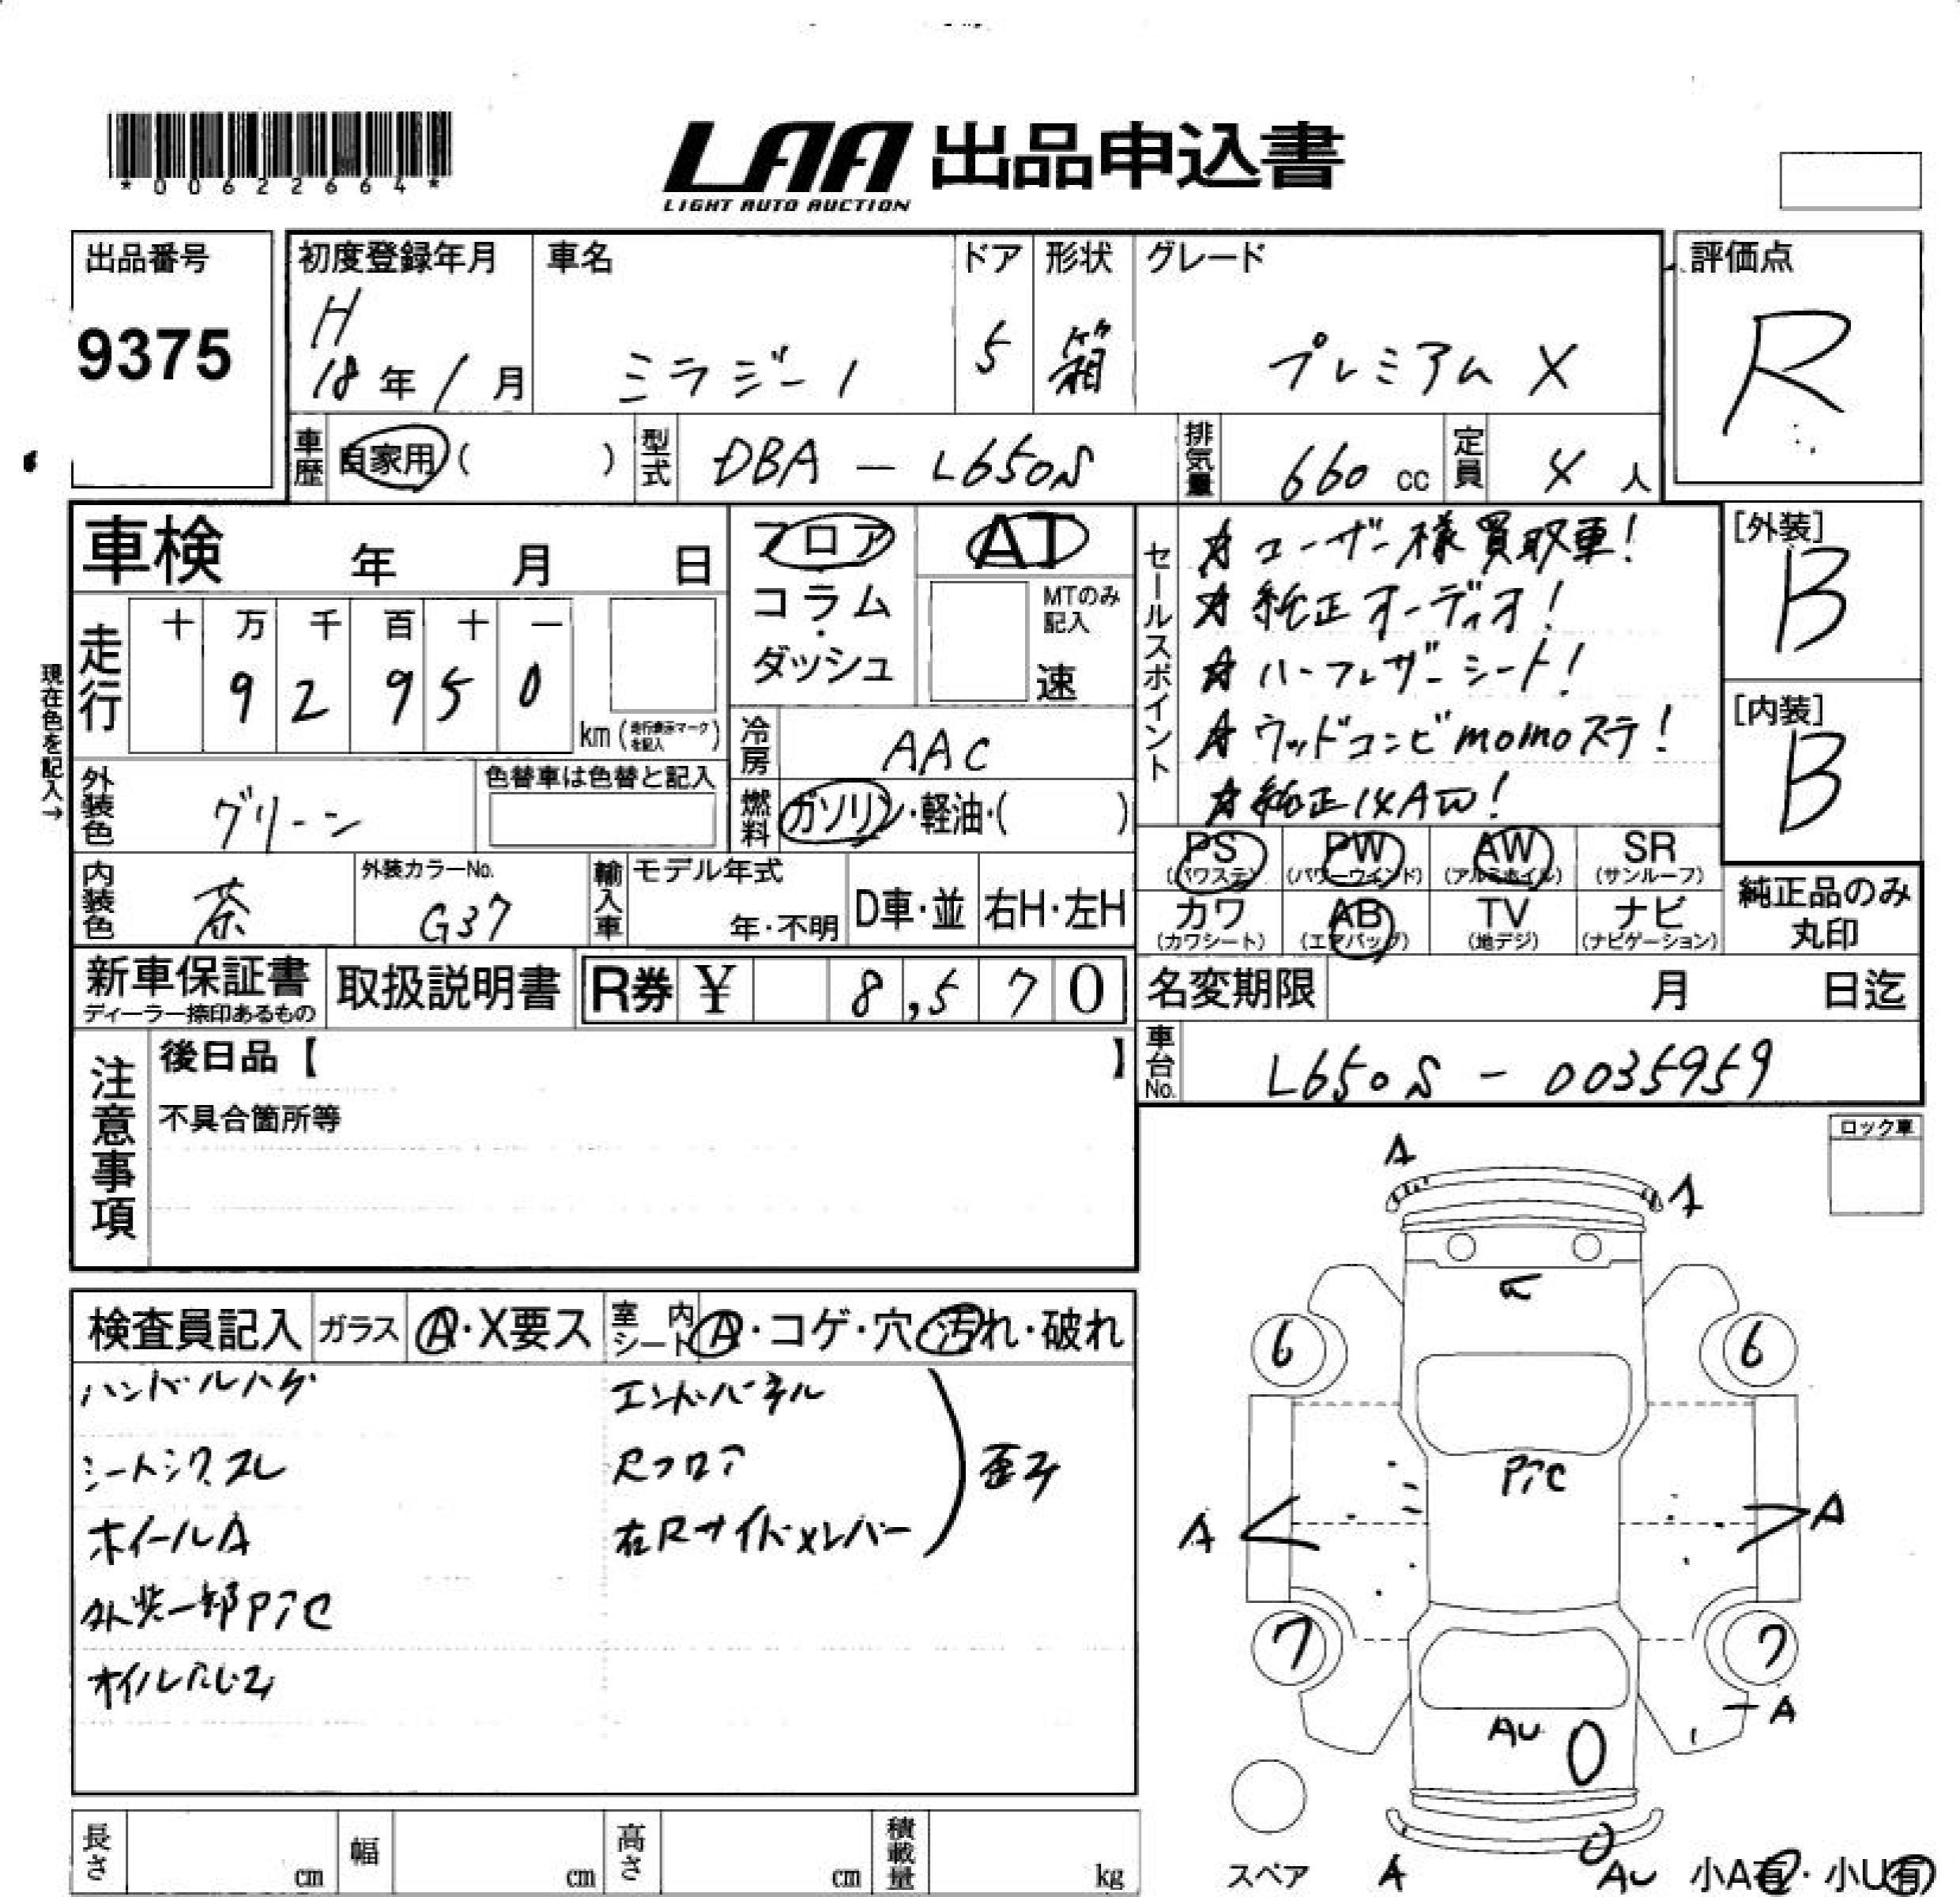 *00622664*
LAA 出品申込書
LIGHT AUTO AUCTION
出品番号
9375
初度登録年月
H
18年1月
車名
ミラジーノ
ドア
5
形状
箱
グレード
プレミアムX
評価点
R
車歴
自家用( )
型式
DBA — L650S
排気量
660 cc
定員
4 人
車検 年 月 日
走行
十 万 千 百 十 一
9 2 9 5 0
km (走行表示マークを記入)
現在色を記入→
フロア
コラム
・
ダッシュ
AT
MTのみ
記入
速
冷房
AAC
燃料
ガソリン・軽油・( )
外装色
グリーン
色替車は色替と記入
内装色
茶
外装カラーNo.
G37
輸入車
モデル年式
年・不明
D車・並
右H・左H
新車保証書
ディーラー捺印あるもの
取扱説明書
R券 ¥ 8,570
セールスポイント
☆ユーザー様買取車!
☆純正オーディオ!
☆ハーフレザーシート!
☆ウッドコンビmomoステ!
☆純正14AW!
[外装]
B
[内装]
B
PS
(パワステ)
PW
(パワーウインド)
AW
(アルミホイル)
SR
(サンルーフ)
カワ
(カワシート)
AB
(エアバッグ)
TV
(地デジ)
ナビ
(ナビゲーション)
純正品のみ
丸印
名変期限 月 日迄
車台No.
L650S - 0035959
注意事項
後日品【 】
不具合箇所等
ロック車
検査員記入
ガラス
A・X要ス
室内
シート
A・コゲ・穴・汚れ・破れ
ハンドルハゲ
シートシワスレ
ホイールA
外装一部PTC
オイルにじみ
エンドパネル
Rフロア
右Rサイドメンバー
歪み
A
A
6
6
PTC
A
A
7
7
A
AU
A
AU
スペア
小A有・小U有
長さ cm
幅 cm
高さ cm
積載量 kg